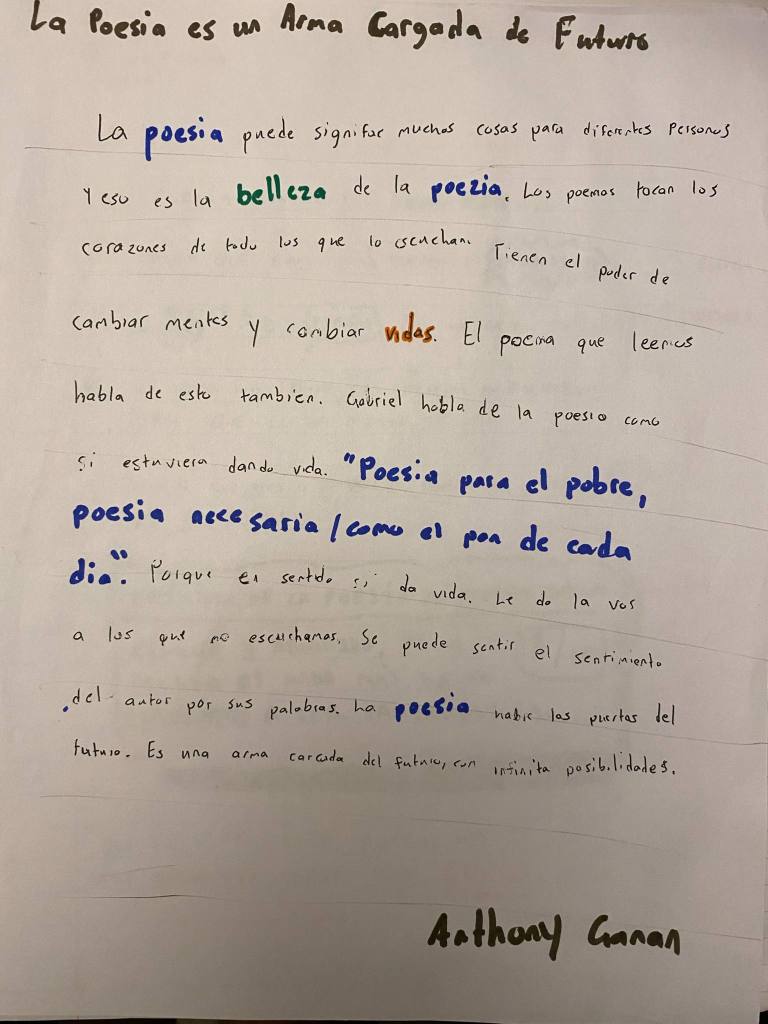 La Poesia es un Arma Cargada de Futuro
La poesia puede signifar muchas cosas para diferentes personas
Y eso es la belleza de la poezia. Los poemas tocan los
corazones de todo los que lo escuchan. Tienen el poder de
cambiar mentes y cambiar vidas. El poema que leemos
habla de esto tambien. Gabriel habla de la poesia como
si estuviera dando vida. "Poesia para el pobre,
poesia necesaria / como el pan de cada
dia". Porque en sentido si da vida. Le da la vos
a los que no escuchamos. Se puede sentir el sentimiento
del autor por sus palabras. La poesia las puertas del
futuro. Es una arma cargada del futuro, con infinita posibilidades.
Anthony Ganan